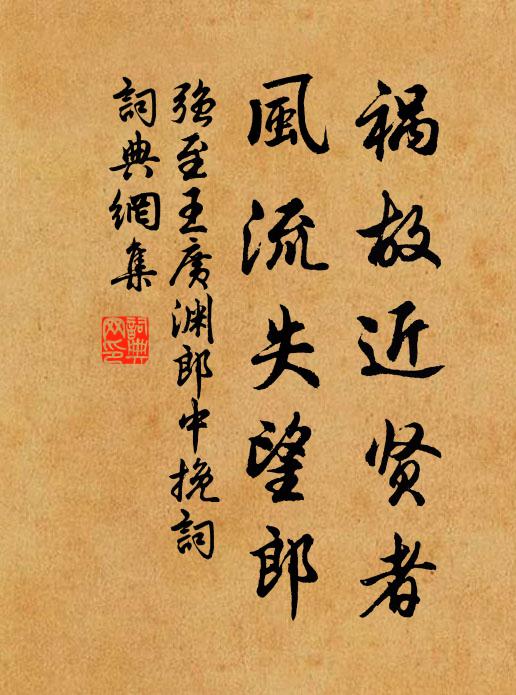 祸故近贤者
風流失望郎
强至王廣渊郎中挽詞
詞典網集
詞典網印